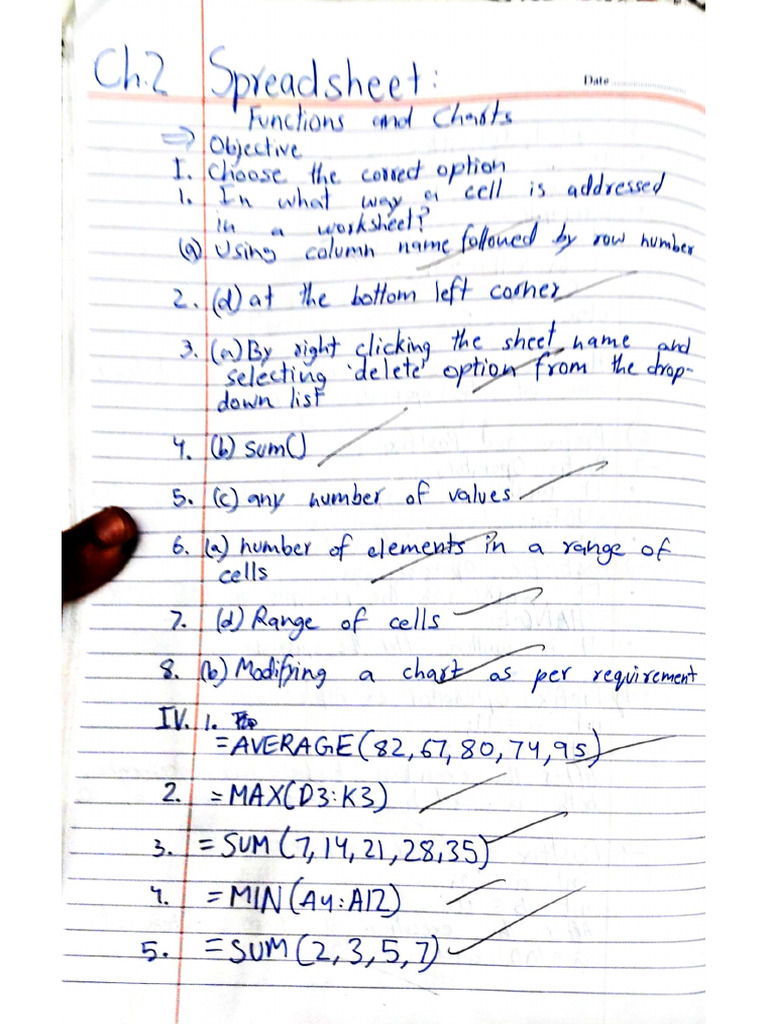 Ch.2 Spreadsheet:
Date
Functions and Charts
⇒ Objective
I. Choose the correct option
1. In what way a cell is addressed
in a worksheet?
(a) Using column name followed by row number
2. (d) at the bottom left corner
3. (a) By right clicking the sheet name and
selecting 'delete' option from the drop-
down list
4. (b) sum()
5. (c) any number of values
6. (a) number of elements in a range of
cells
7. (d) Range of cells
8. (b) Modifying a chart as per requirement
IV. 1.
=AVERAGE(82,67,80,74,95)
2. =MAX(D3:K3)
3. =SUM(7,14,21,28,35)
4. =MIN(A4:A12)
5. =SUM(2,3,5,7)